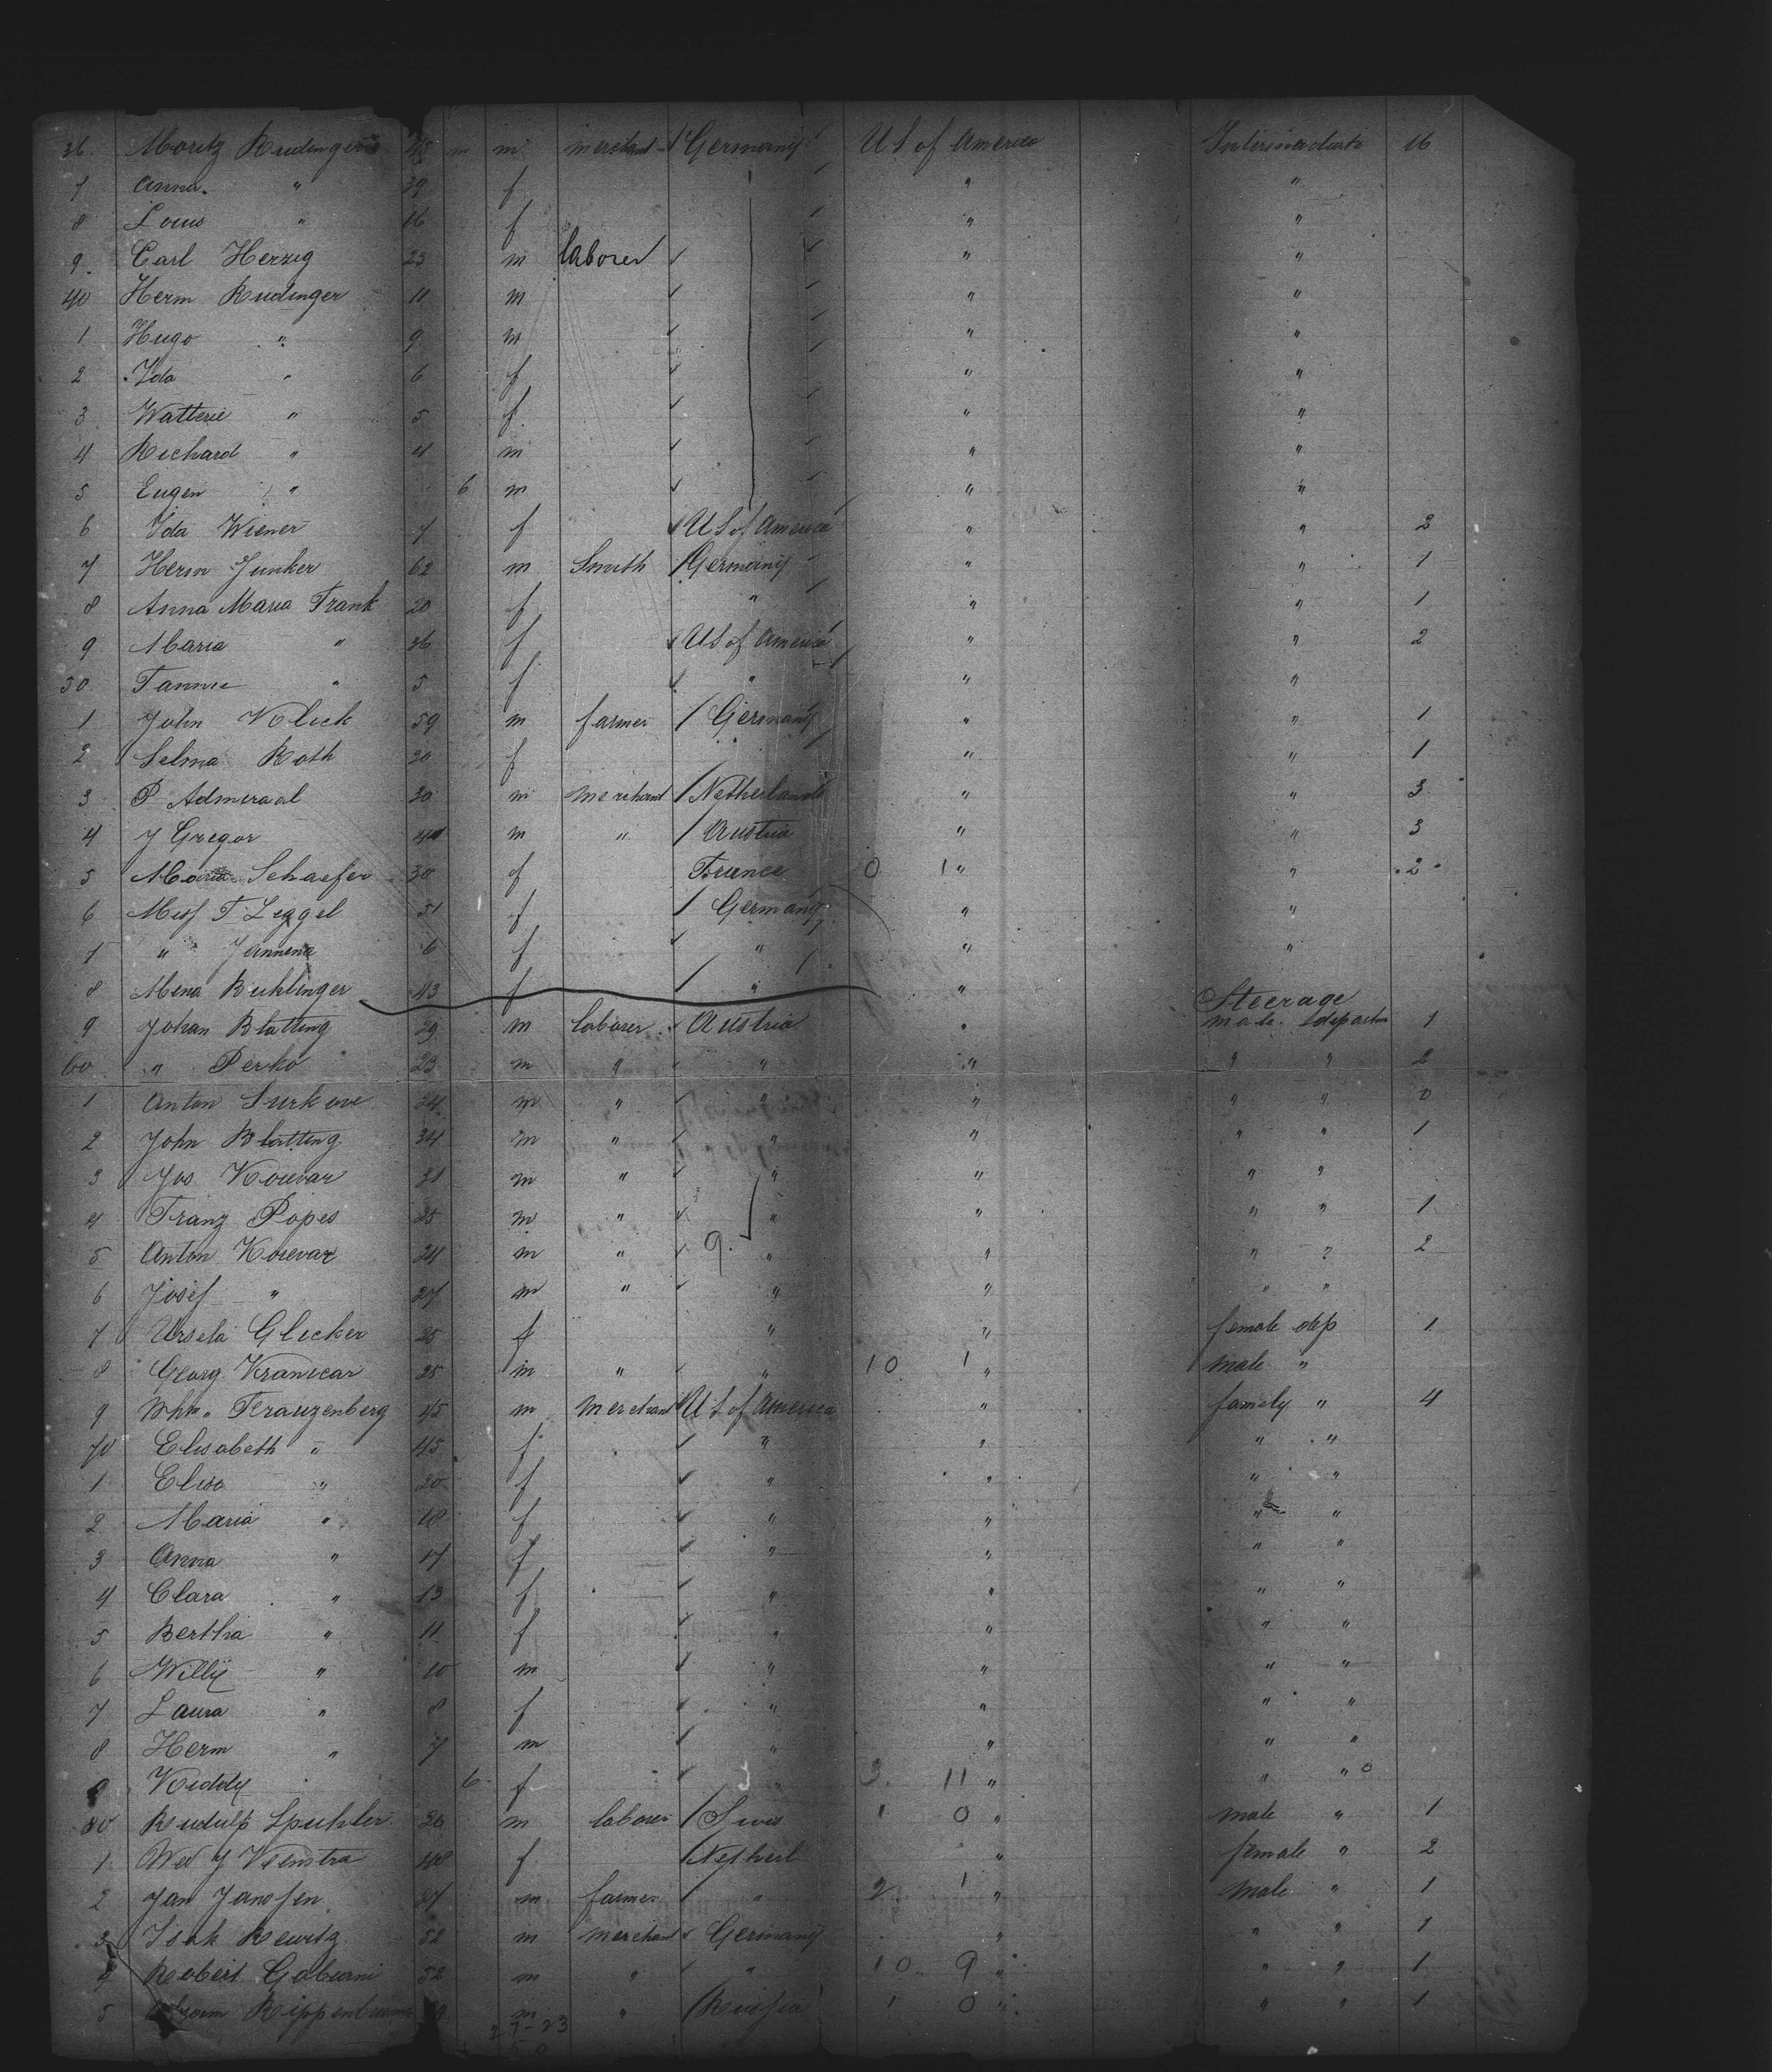 36 Moritz Rudinger 45 m m merchant Germany U S of America Intermediate 16
7 Anna " 39 f " "
8 Louis " 16 f " "
9 Carl Herzig 23 m laborer " "
40 Herm Rudinger 11 m " "
1 Hugo " 9 m " "
2 Ida " 6 f " "
3 " 5 f " "
4 Richard " 4 m " "
5 Eugen " 6 m " "
6 Ida Wiener 7 f U S of America " " 2
7 Herm Junker 62 m Smith Germany " " 1
8 Anna Maria Frank 20 f " " " 1
9 Maria " 36 f U S of America " " 2
50 Fannie " 5 f " " "
1 John Klick 59 m farmer Germany " " 1
2 Selma Roth 20 f " " 1
3 P Admiraal 30 m merchant Netherlands " " 3
4 J Gregor m " Austria " " 3
5 Maria Schaefer 30 f France 0 1 " " 2
6 Miss F Leggel 51 f Germany " "
7 " 6 f " " "
8 Mina Buhlinger 43 f " "
Steerage
9 Johan Blatting 29 m laborer Austria " male depart 1
60 " Perko 23 m " " " " " 2
1 Anton 24 m " " " " " 0
2 John Blatting 34 m " " " " " 1
3 Jos Kocevar 31 m " " " " "
4 Franz Popes 25 m " " " " " 1
5 Anton Kocevar 24 m " 9 " " " " 2
6 Josef " 27 m " " " " "
7 Ursela Glicker 25 f " " female dep 1
8 Georg Kranicar 25 m " " 10 1 " male "
9 Frauzenberg 45 m merchant U S of America " family " 4
70 Elisabeth " 45 f " " " "
1 Elisa " 20 f " " " "
2 Maria " 18 f " " " "
3 Anna " 17 f " " " "
4 Clara " 13 f " " " "
5 Bertha " 11 f " " " "
6 Willy " 10 m " " " "
7 Laura " 8 f " " " "
8 Herm " 7 m " " " "
9 Kiddy 6 f " 3 11 " " " 0
80 Rudulf Spuhler 26 m laborer Swis 1 0 " male " 1
1 Wed J Veenstra 48 f Netherl " female " 2
2 Jan Janssen 27 m farmer " 2 1 " male " 1
3 Isak Rewitz 52 m merchant Germany " " " 1
4 Robert 52 m " " 10 9 " " " 1
5 m " Russia 1 0 " " " 1
27-23